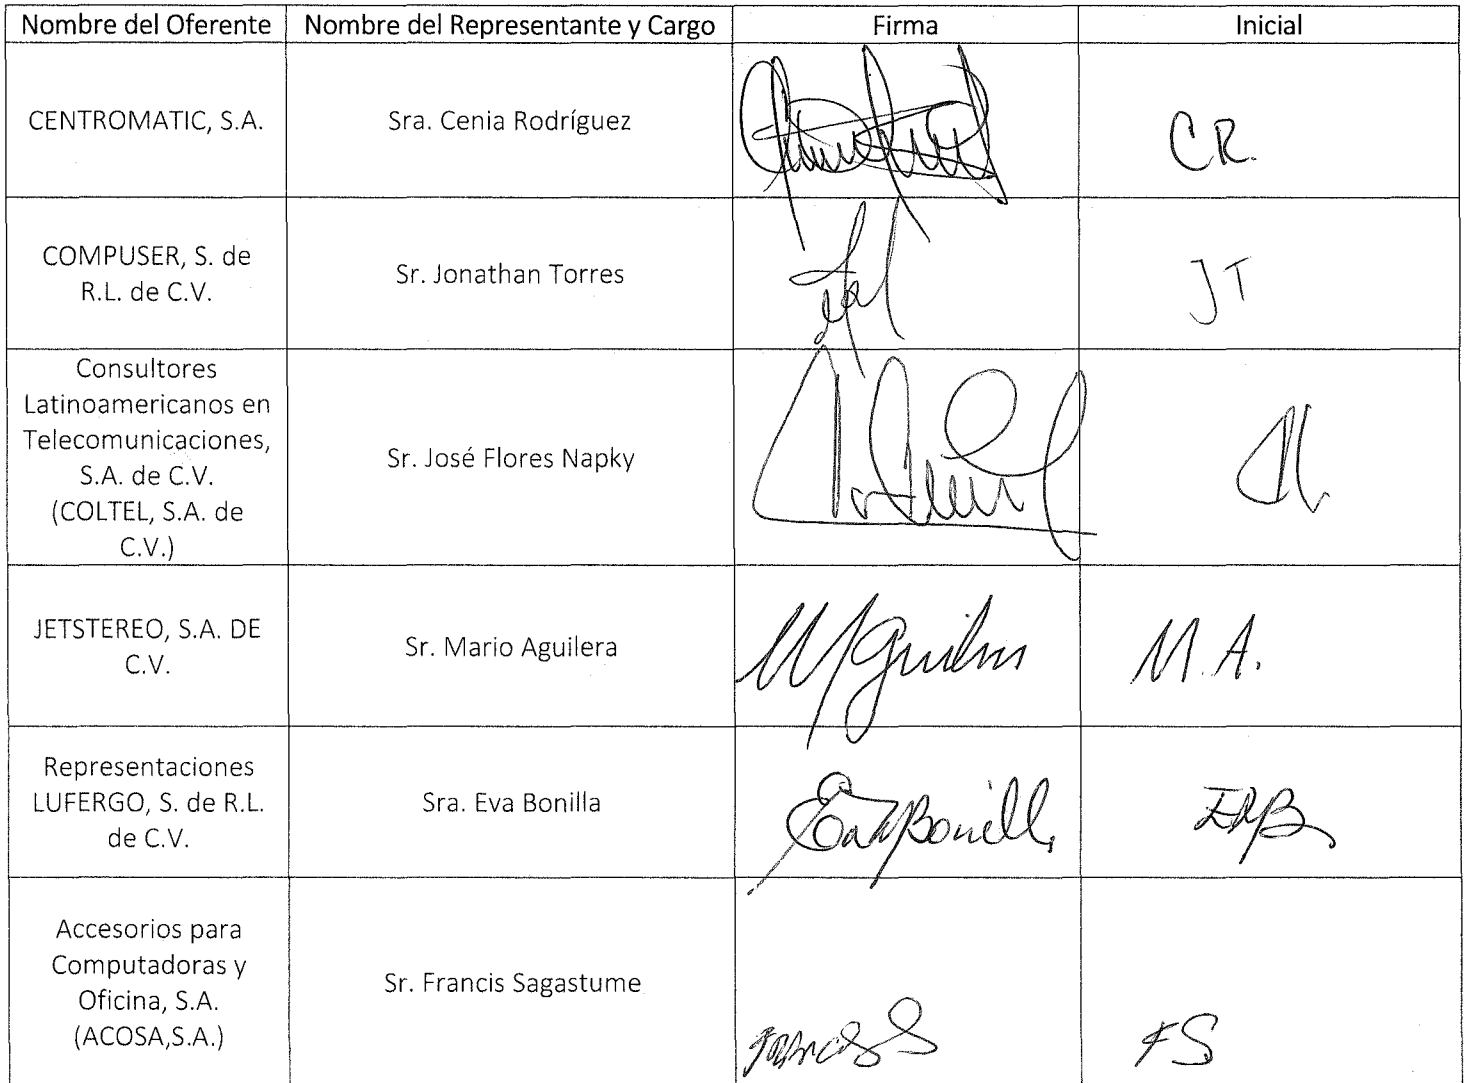 Nombre del Oferente Nombre del Representante y Cargo Firma Inicial
CENTROMATIC, S.A. Sra. Cenia Rodríguez CR.
COMPUSER, S. de
R.L. de C.V.
Sr. Jonathan Torres JT
Consultores
Latinoamericanos en
Telecomunicaciones,
S.A. de C.V.
(COLTEL, S.A. de
C.V.)
Sr. José Flores Napky
JETSTEREO, S.A. DE
C.V.
Sr. Mario Aguilera M.A.
Representaciones
LUFERGO, S. de R.L.
de C.V.
Sra. Eva Bonilla
Accesorios para
Computadoras y
Oficina, S.A.
(ACOSA,S.A.)
Sr. Francis Sagastume FS